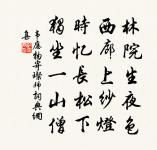 林院生夜色
西廊上紗燈
時憶長松下
獨坐一山僧
韋應物寄璨師詞典網